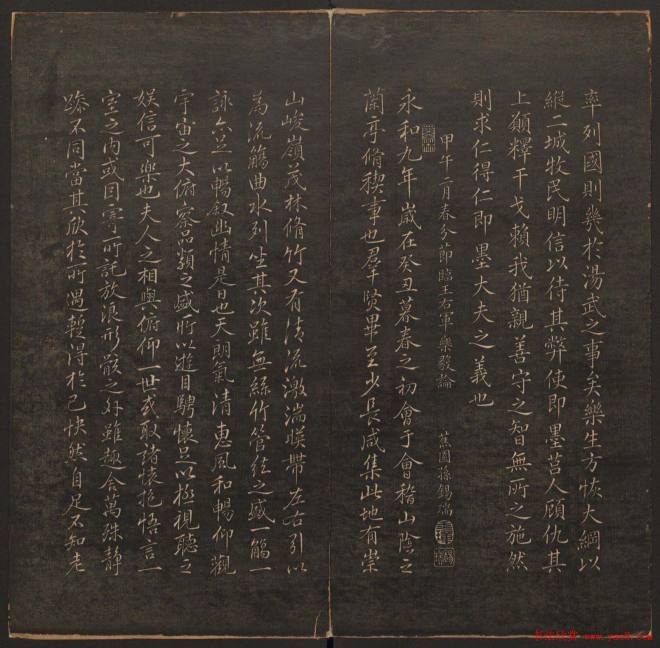 率列國則幾於湯武之事矣樂生方恢大綱以
縱二城牧民明信以待其弊使即墨莒人顧仇其
上願釋干戈賴我猶親善守之智無所之施然
則求仁得仁即墨大夫之義也
甲午二月春分節臨王右軍樂毅論 蕉園孫錫瑞
永和九年歲在癸丑暮春之初會于會稽山陰之
蘭亭脩稧事也羣賢畢至少長咸集此地有崇
山峻領茂林脩竹又有清流激湍暎帶左右引以
為流觴曲水列坐其次雖無絲竹管弦之盛一觴一
詠亦足以暢敘幽情是日也天朗氣清惠風和暢仰觀
宇宙之大俯察品類之盛所以遊目騁懷足以極視聽之
娛信可樂也夫人之相與俯仰一世或取諸懷抱悟言一
室之內或因寄所託放浪形骸之外雖趣舍萬殊靜
躁不同當其欣於所遇暫得於己快然自足不知老